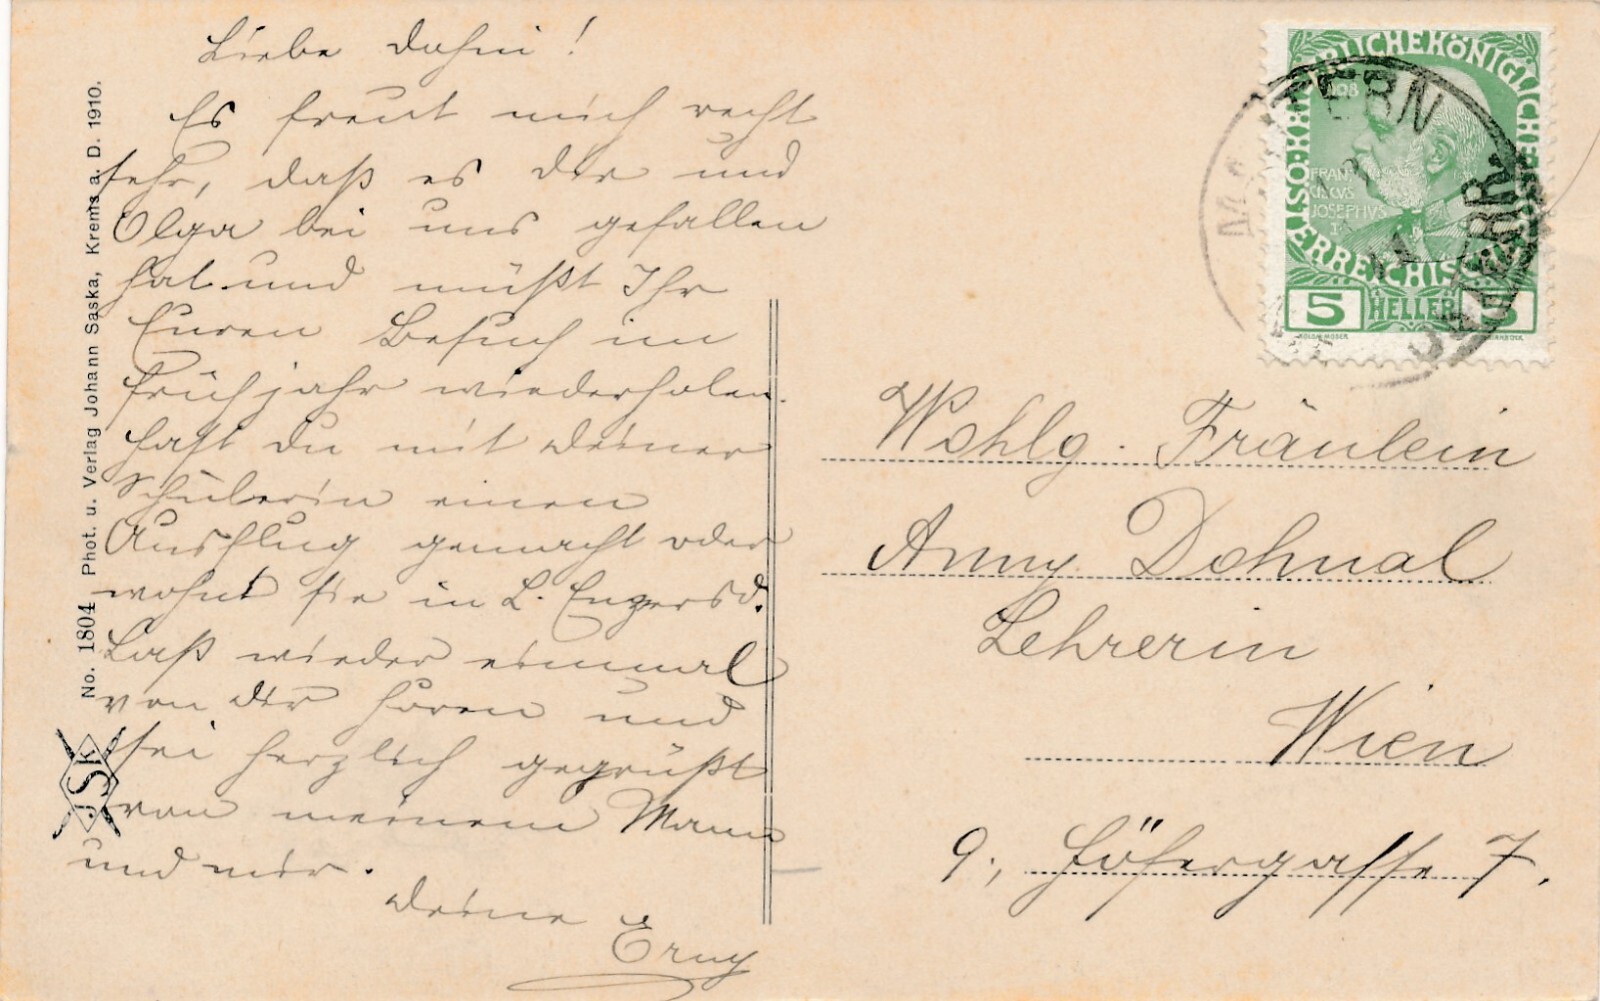 Liebe Dohni!
Es freut mich recht
sehr, daß es Dir und
Olga bei uns gefallen
hat und müßt Ihr
Euren Besuch im
Frühjahr wiederholen.
Hast Du mit Deiner
Schülerin einen
Ausflug gemacht oder
wohnt sie in L. Enzersd.
Laß wieder einmal
von Dir hören und
sei herzlich gegrüßt
von meinem Mann
und mir.
Deine
Erny
No. 1804 Phot. u. Verlag Johann Saska, Krems a. D. 1910.
JSK
KAISERLICHEKÖNIGLICHE
ÖSTERREICHISCHE
1908
FRAN
CISCVS
JOSEPHVS
I
5 HELLER 5
MAUTERN
Wohlg. Fräulein
Anny Dohnal
Lehrerin
Wien
9., Höfergasse 7.